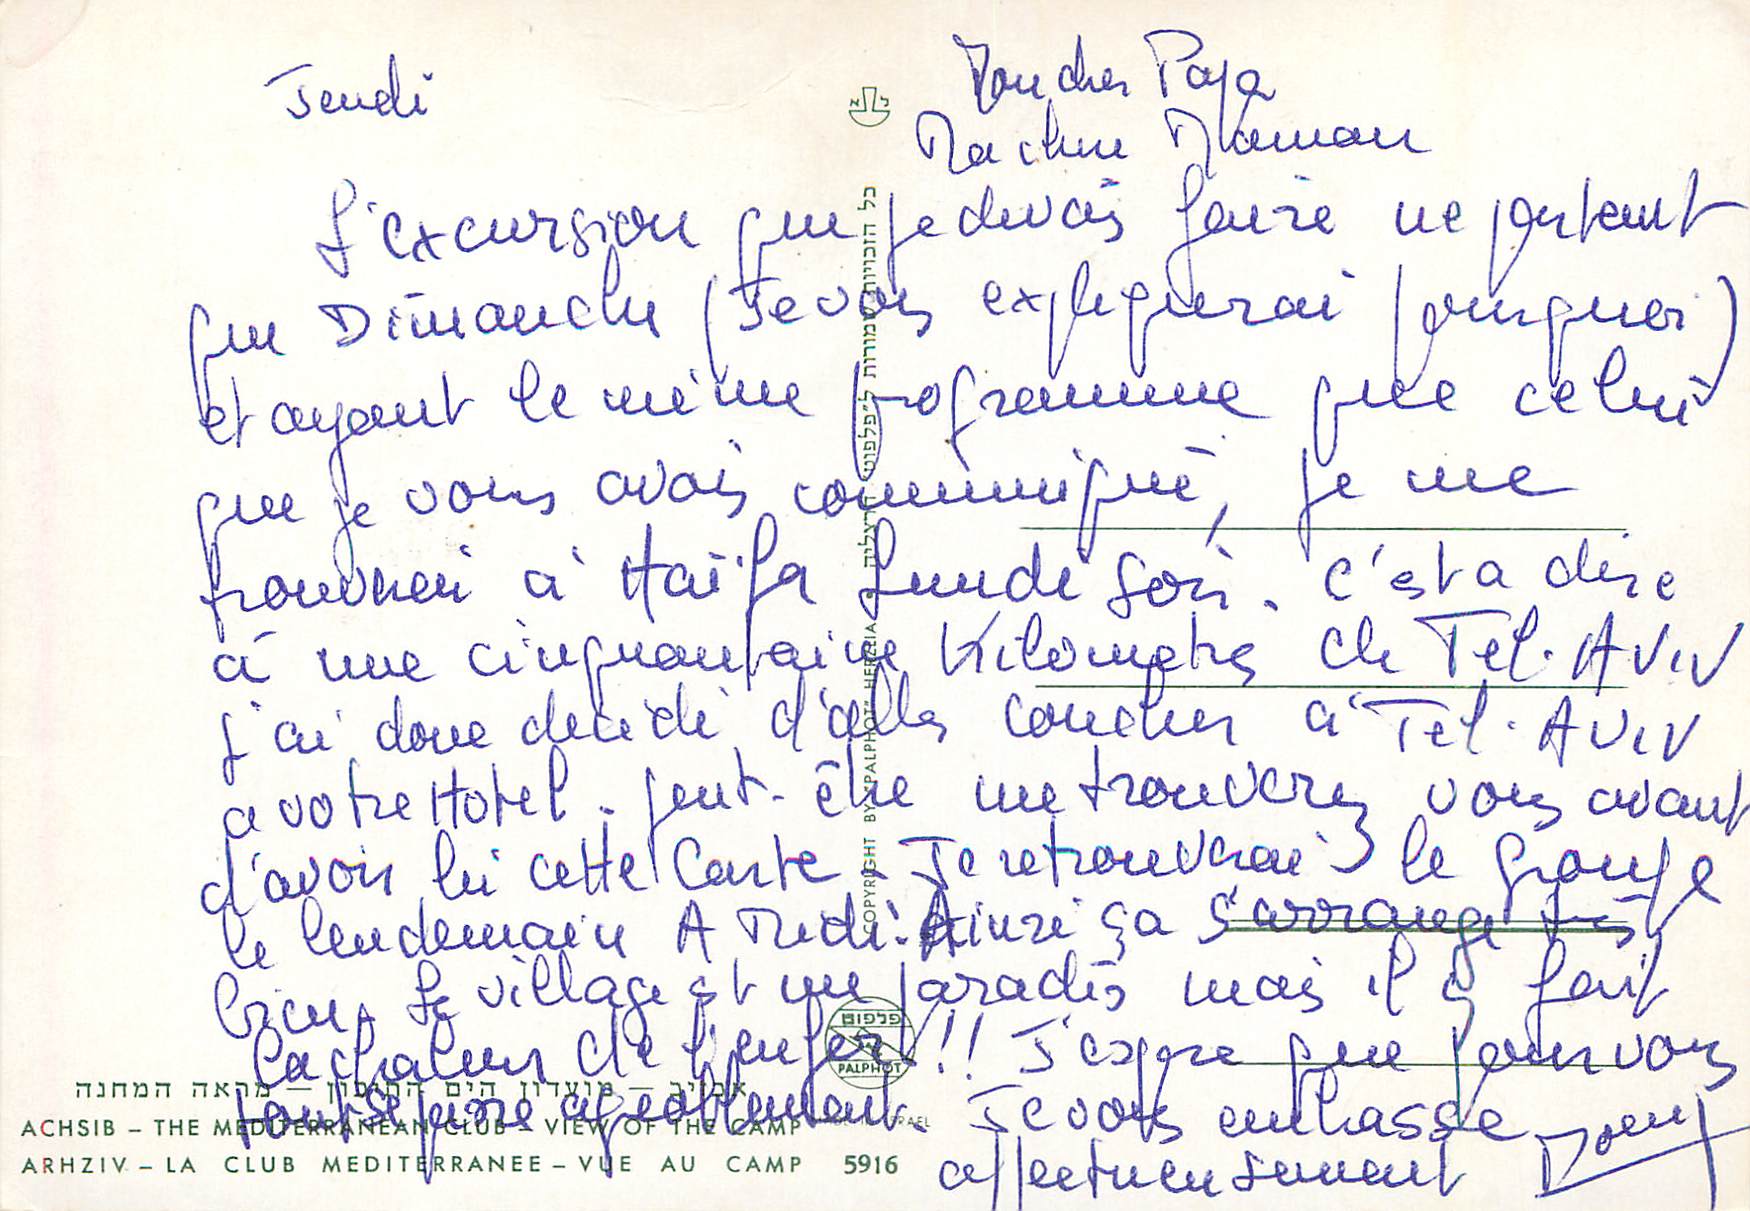 Jeudi
Mon cher Papa
Ma chère Maman
L'excursion que je devais faire ne partant
que Dimanche (Je vous expliquerai pourquoi)
et ayant le même programme que celui
que je vous avais communiqué, je me
trouverai à Haïfa Lundi soir. C'est a dire
à une cinquantaine Kilometres de Tel. Aviv
j'ai donc decidé d'aller coucher à Tel. Aviv
a votre Hotel. peut-être me trouverez vous avant
d'avoir lu cette Carte. Je retrouverai le groupe
le lendemain A Midi. Ainsi ça s'arrange très
bien. Le village est un paradis mais il y fait
la chaleur de l'enfer!!! J'espere que pour vous
tout se passe agreablement. Je vous embrasse
affectueusement
כל הזכויות שמורות לפלפוט הרצליה
COPYRIGHT BY PALPHOT HERZLIA
פלפוט
PALPHOT
אכזיב – מועדון הים התיכון – מראה המחנה
ACHSIB – THE MEDITERRANEAN CLUB – VIEW OF THE CAMP
ARHZIV – LA CLUB MEDITERRANEE – VUE AU CAMP 5916